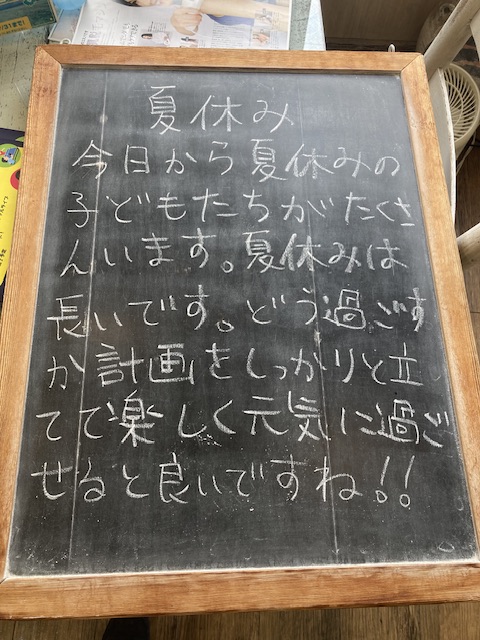 夏休み
今日から夏休みの
子どもたちがたくさ
んいます。夏休みは
長いです。どう過ごす
か計画をしっかりと立
てて楽しく元気に過ご
せると良いですね!!